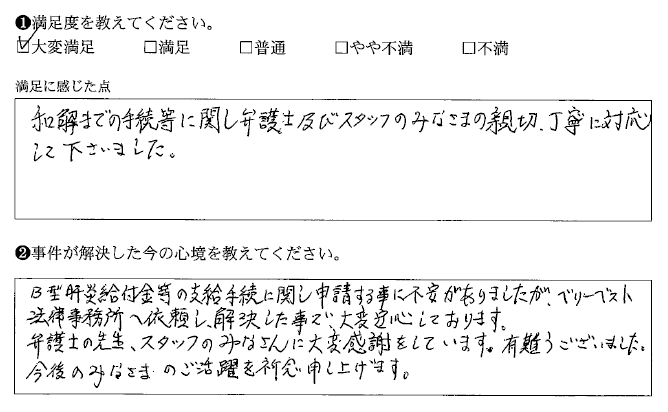 ❶満足度を教えてください。
☑大変満足 □満足 □普通 □やや不満 □不満
満足に感じた点
和解までの手続等に関し弁護士及びスタッフのみなさまの親切、丁寧に対応
して下さいました。
❷事件が解決した今の心境を教えてください。
B型肝炎給付金等の支給手続に関し申請する事に不安がありましたが、ベリーベスト
法律事務所へ依頼し、解決した事で、大変安心しております。
弁護士の先生、スタッフのみなさんに大変感謝をしています。有難うございました。
今後のみなさまのご活躍を祈念申し上げます。